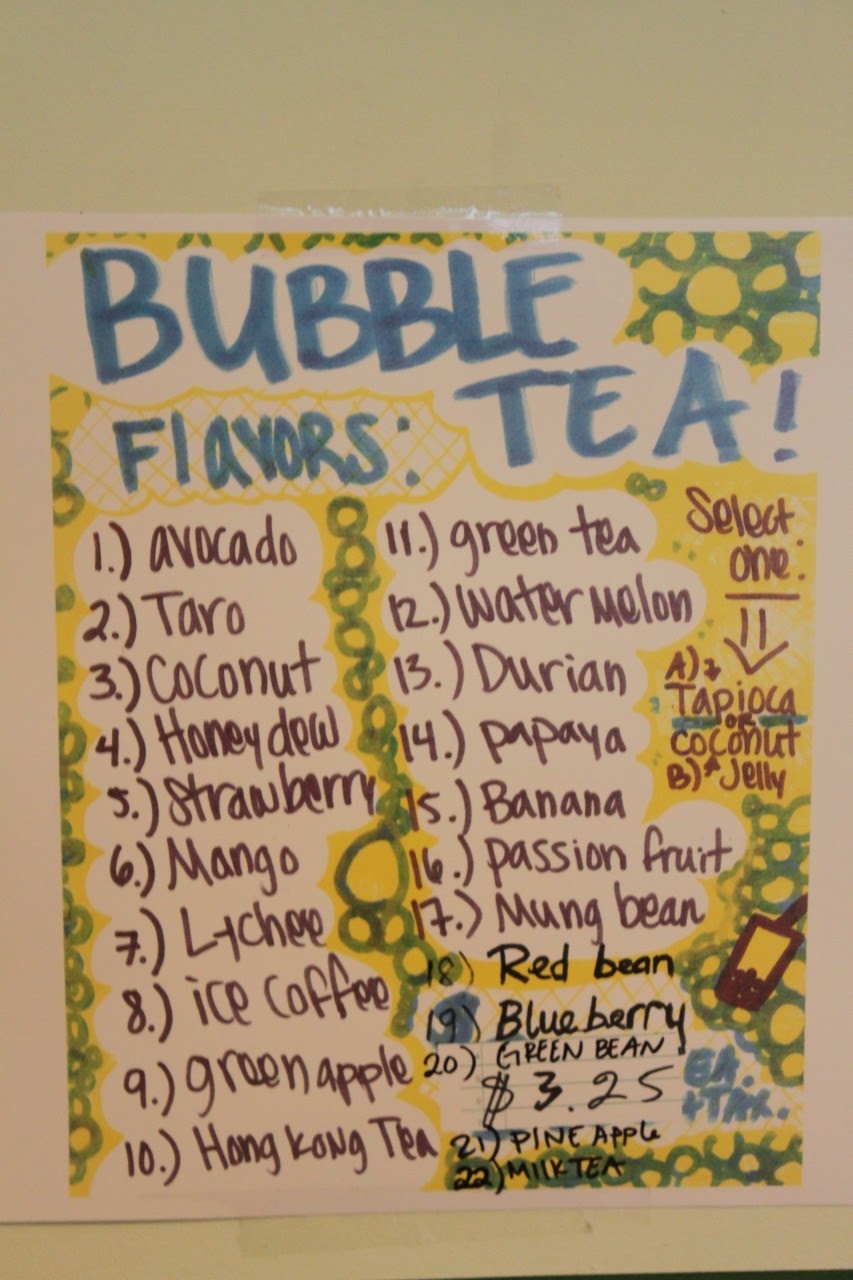 BUBBLE
TEA!
FlavORS:
1.) avocado
2.) Taro
3.) Coconut
4.) Honeydew
5.) Strawberry
6.) Mango
7.) Lychee
8.) ice Coffee
9.) green apple
10.) Hong Kong Tea
11.) green tea
12.) Water Melon
13.) Durian
14.) papaya
15.) Banana
16.) passion fruit
17.) Mung bean
18) Red bean
19) Blueberry
20) GREEN BEAN
$3.25
EA.
+TAX.
21) PINE APPle
22) MIlK TEA
Select
one:
A)
Tapioca
OR
coconut
B) Jelly